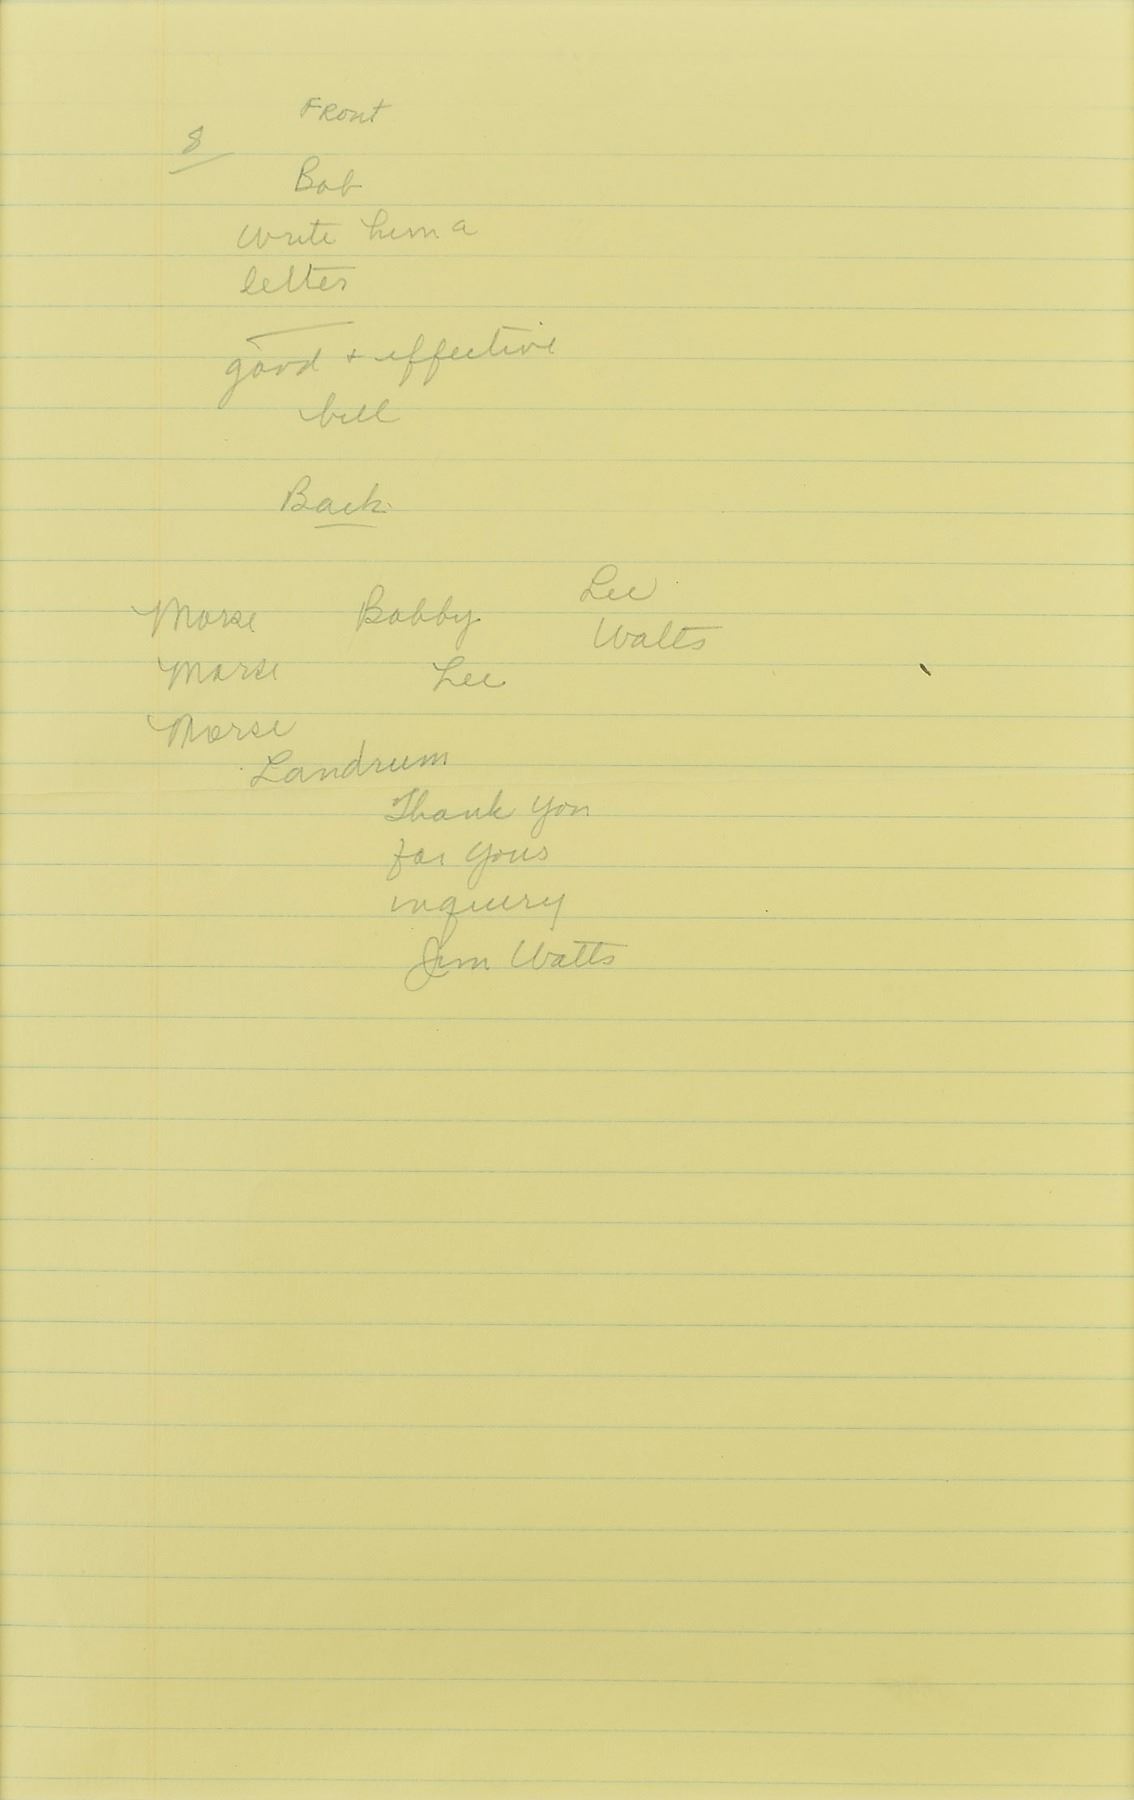 Front
8
Bob
write him a
letter
good + effective
bill
Back
Lee
Morse Bobby
Watts
Morse Lee
Morse
Landrum
Thank you
for your
inquiry
Jim Watts